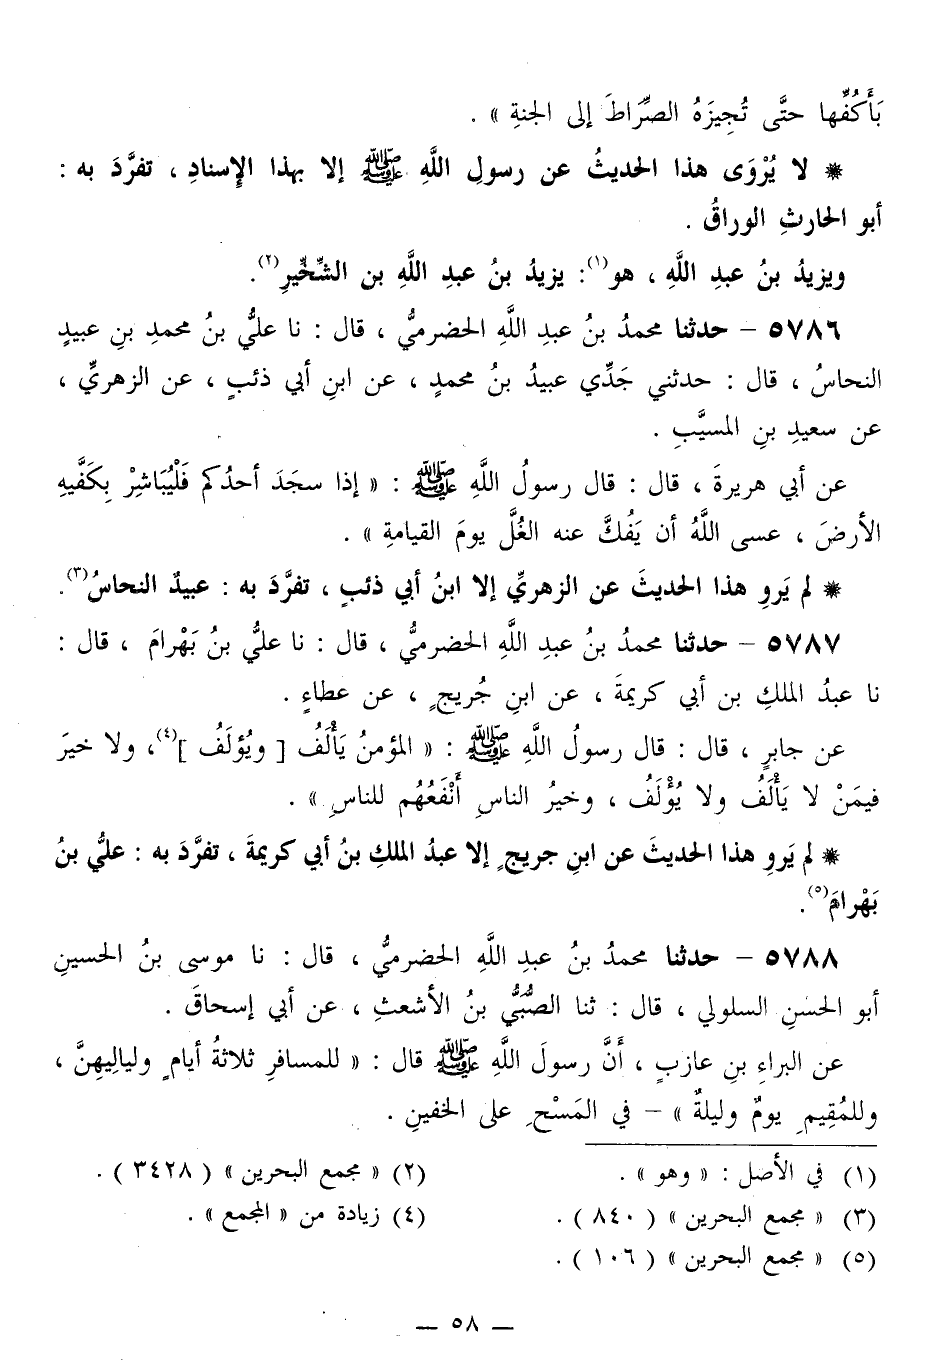 بَأَكُفِّها حتَّى تُجِيزَهُ الصِّرَاطَ إلى الجنةِ » .
* لا يُرْوَى هذا الحديثُ عن رسولِ اللَّهِ ﷺ إلا بهذا الإسنادِ ، تفرَّدَ به :
أبو الحارثِ الوراقُ .
ويزيدُ بنُ عبدِ اللَّهِ ، هو(١): يزيدُ بنُ عبدِ اللَّهِ بن الشِّخِّيرِ(٢).
٥٧٨٦ – حدثنا محمدُ بنُ عبدِ اللَّهِ الحضرميُّ ، قال : نا عليُّ بنُ محمدِ بنِ عبيدٍ
النحاسُ ، قال : حدثني جَدِّي عبيدُ بنُ محمدٍ ، عن ابنِ أبي ذئبٍ ، عن الزهريِّ ،
عن سعيدِ بنِ المسيَّبِ .
عن أبي هريرةَ ، قال : قال رسولُ اللَّهِ ﷺ : « إذا سجَدَ أحدُكم فَلْيُبَاشِرْ بِكَفَّيهِ
الأرضَ ، عسى اللَّهُ أن يَفُكَّ عنه الغُلَّ يومَ القيامةِ » .
* لم يَروِ هذا الحديثَ عن الزهريِّ إلا ابنُ أبي ذئبٍ ، تفرَّدَ به : عبيدٌ النحاسُ(٣).
٥٧٨٧ – حدثنا محمدُ بنُ عبدِ اللَّهِ الحضرميُّ ، قال : نا عليُّ بنُ بَهْرامَ ، قال :
نا عبدُ الملكِ بن أبي كريمةَ ، عن ابنِ جُريجٍ ، عن عطاءٍ .
عن جابرٍ ، قال : قال رسولُ اللَّهِ ﷺ : « المؤمنُ يَأْلَفُ [ ويُؤلَفُ ](٤)، ولا خيرَ
فيمَنْ لا يَأْلَفُ ولا يُؤْلَفُ ، وخيرُ الناسِ أَنْفَعُهُم للناسِ » .
* لم يَروِ هذا الحديثَ عن ابنِ جريجٍ إلا عبدُ الملكِ بنُ أبي كريمةَ ، تفرَّدَ به : عليُّ بنُ
بَهْرامَ(٥).
٥٧٨٨ – حدثنا محمدُ بنُ عبدِ اللَّهِ الحضرميُّ ، قال : نا موسى بنُ الحسينِ
أبو الحسنِ السلولي ، قال : ثنا الصُّبَيُّ بنُ الأشعثِ ، عن أبي إسحاقَ .
عن البراءِ بنِ عازبٍ ، أَنَّ رسولَ اللَّهِ ﷺ قال : « للمسافرِ ثلاثةُ أيامٍ ولياليهِنَّ ،
وللمُقِيمِ يومٌ وليلةٌ » – في المَسْحِ على الخفينِ .
(١) في الأصل : « وهو » . (٢) « مجمع البحرين » ( ٣٤٢٨ ) .
(٣) « مجمع البحرين » ( ٨٤٠ ) . (٤) زيادة من « المجمع » .
(٥) « مجمع البحرين » ( ١٠٦ ) .
— ٥٨ —